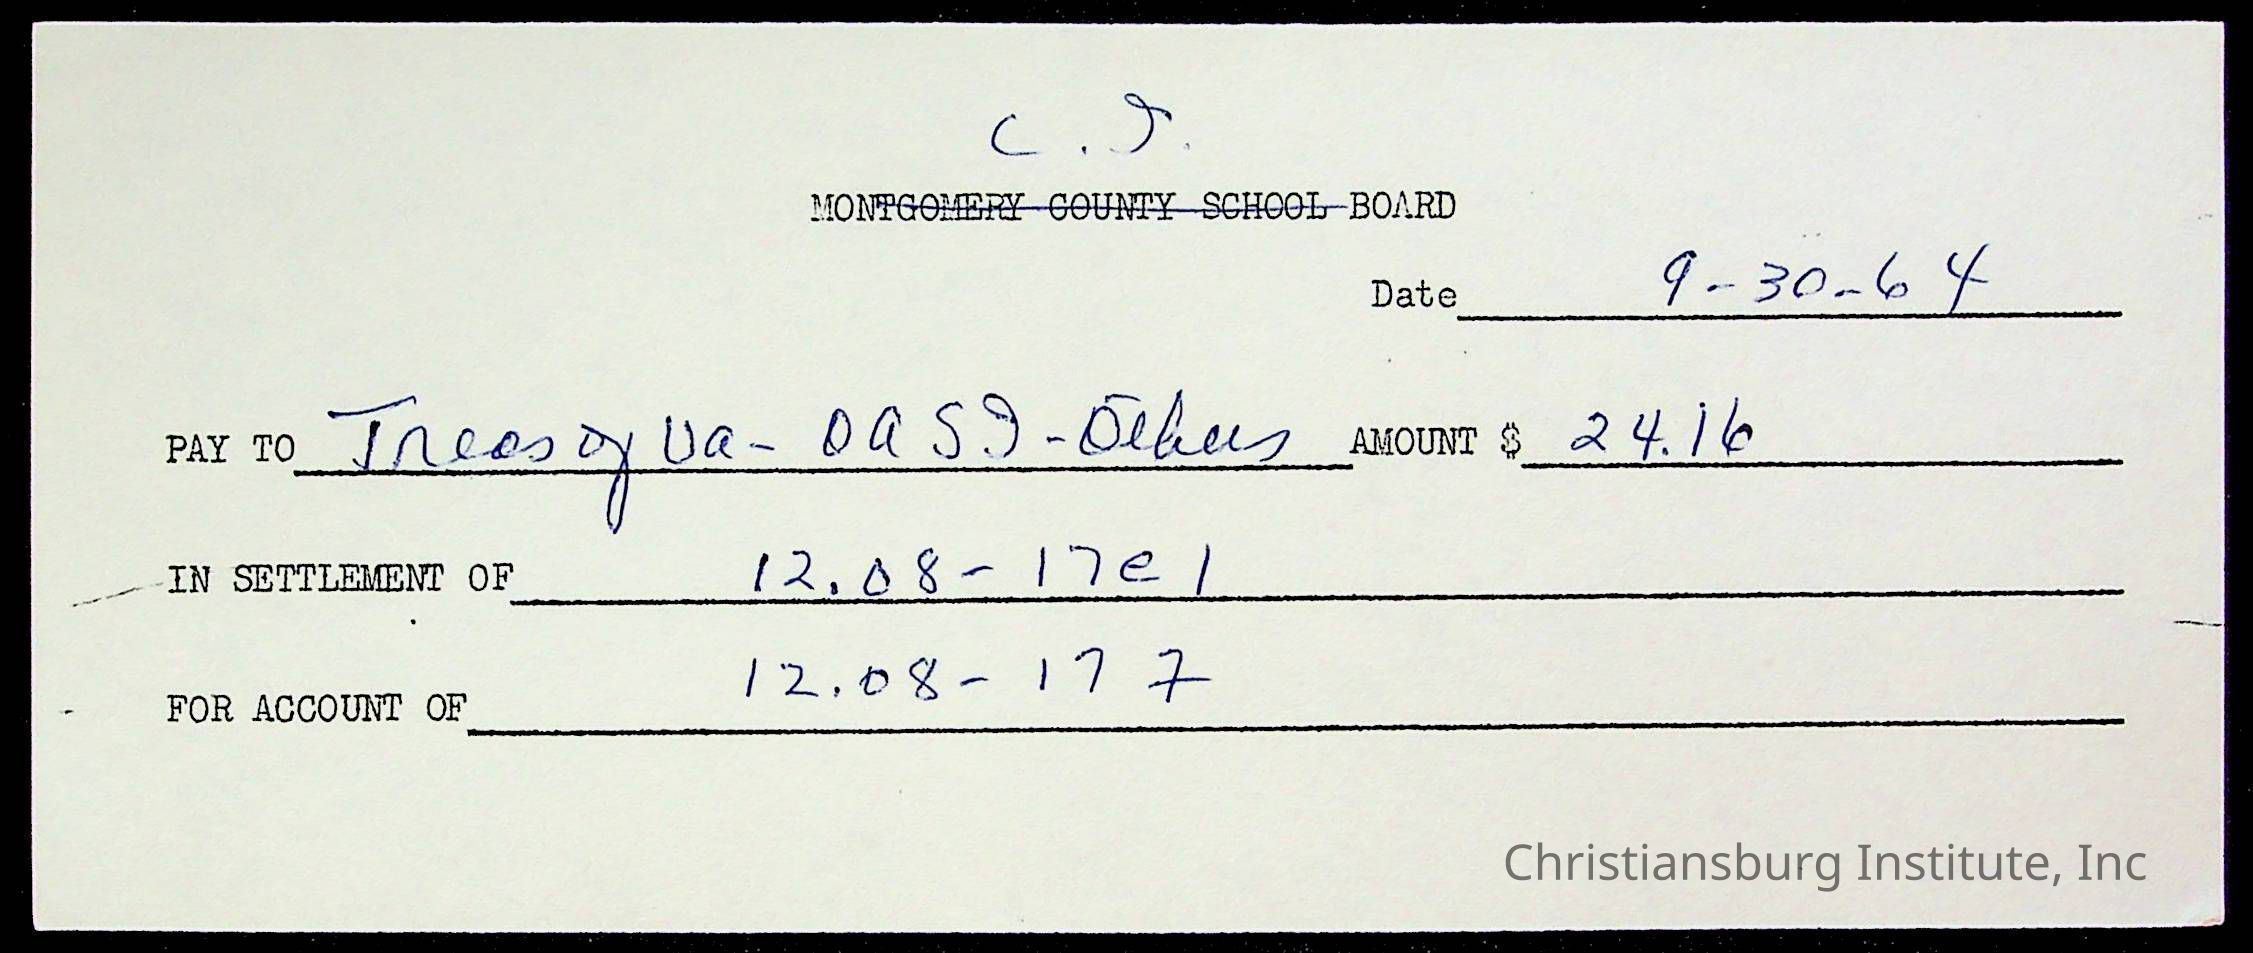 C. I.
MONTGOMERY COUNTY SCHOOL BOARD
Date 9-30-64
PAY TO Treas of Va - OASI - Others AMOUNT $ 24.16
IN SETTLEMENT OF 12.08 - 17e1
FOR ACCOUNT OF 12.08 - 177
Christiansburg Institute, Inc